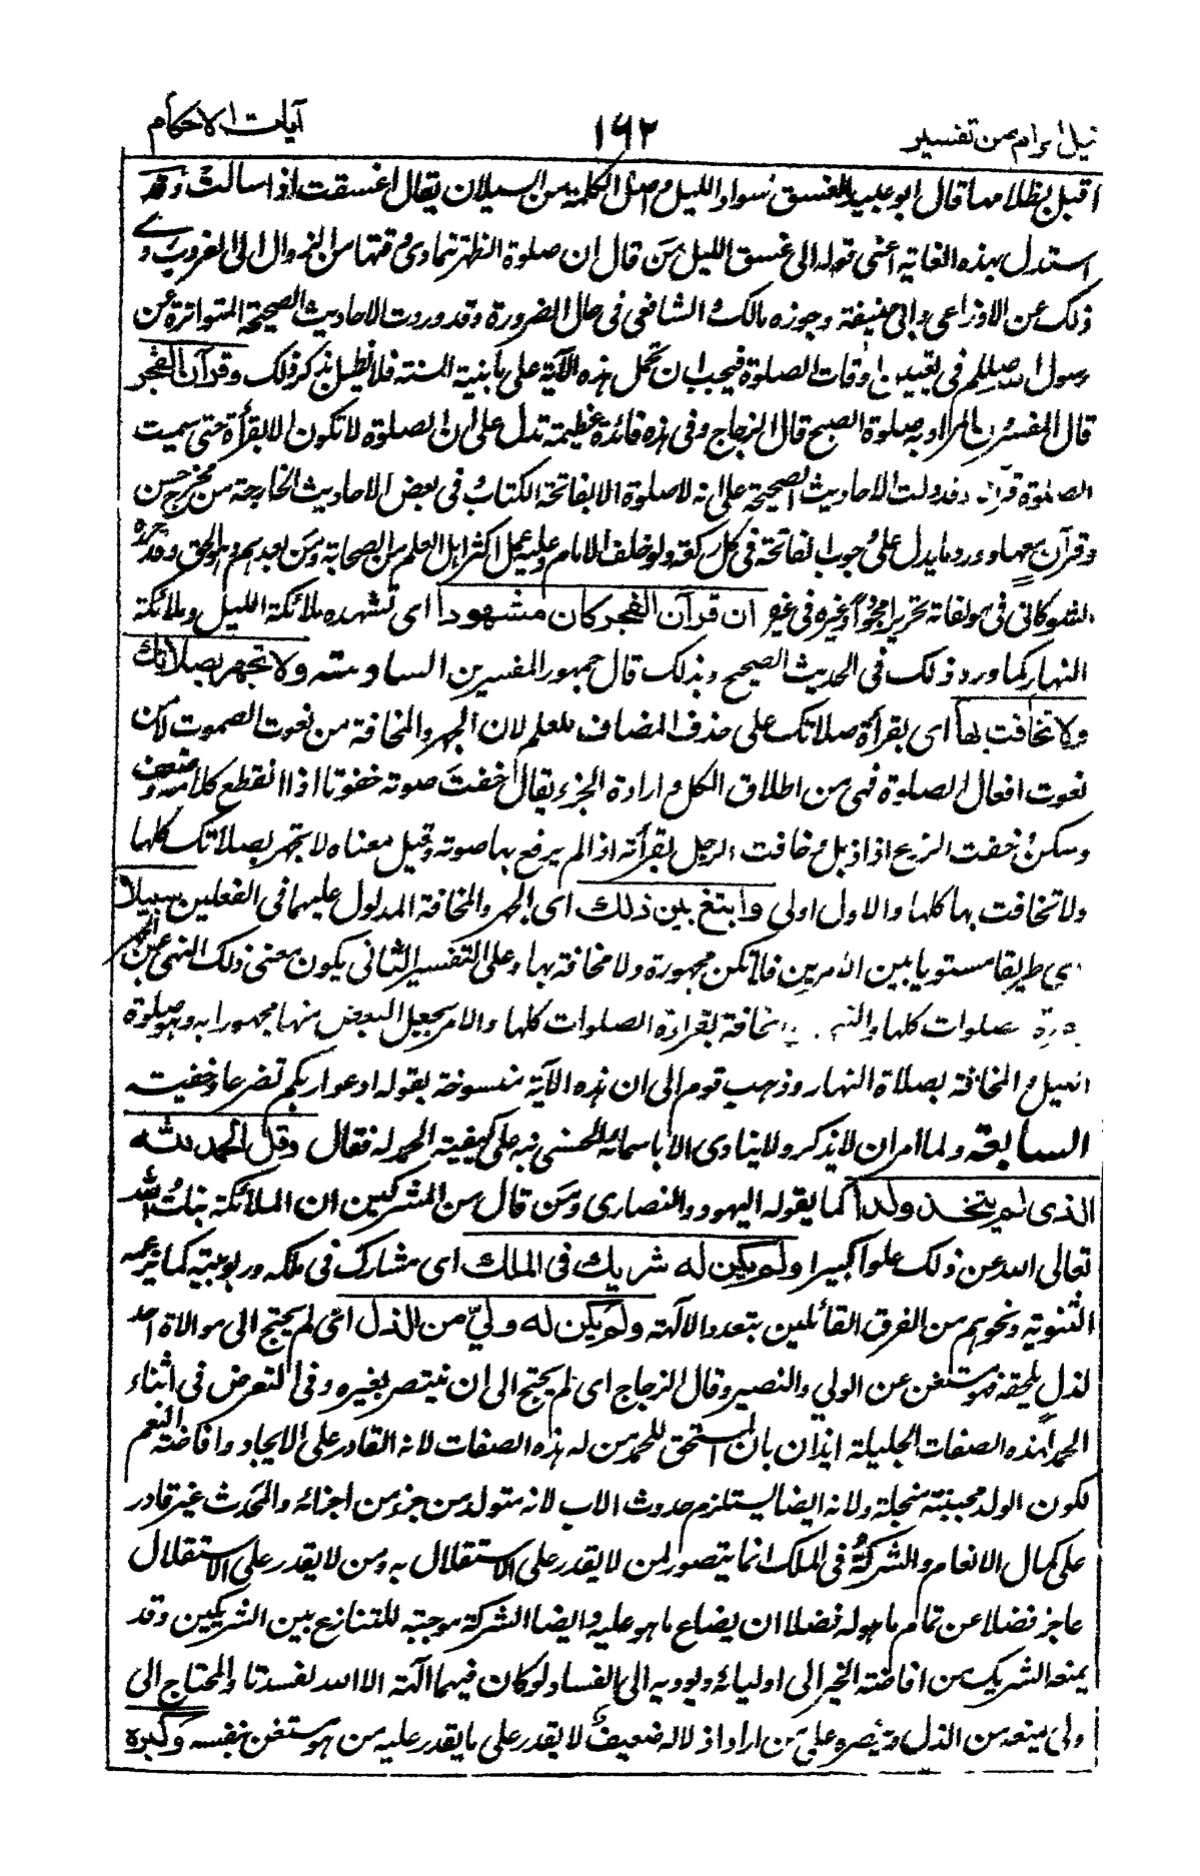 نيل المرام من تفسير ١٦٢ آيات الاحكام
اقبل بظلامها قال ابو عبيد الغسق سواد الليل واصل الكلمة من السيلان يقال اغسقت اذا سالت وقد
استدل بهذه الغاية اعنى قوله الى غسق الليل من قال ان صلوة الظهر تمادى وقتها من الزوال الى الغروب روى
ذلك عن الاوزاعى وابى حنيفة وجوزه مالك والشافعى فى حال الضرورة وقد وردت الاحاديث الصحيحة المتواترة عن
رسول الله صللم فى تعيين اوقات الصلوة فيجب ان تحمل هذه الآية على ما بنية السنة فلا نطيل بذكر ذلك وقرآن الفجر
قال المفسرون المراد به صلوة الصبح قال الزجاج وفى هذه فائدة عظيمة تدل على ان الصلوة لا تكون الا بقرأة حتى سميت
الصلوة قرآنا وقد دلت الاحاديث الصحيحة على انه لا صلوة الا بفاتحة الكتاب وفى بعض الاحاديث الخارجة من مخرج حسن
وقرآن معها وورد ما يدل على وجوب الفاتحة فى كل ركعة ولو خلف الامام وعليه عمل اكثر اهل العلم من الصحابة ومن بعدهم وهو الحق وقد حرره
الشوكانى فى مولفاته تحريرا مجودا وغيره فى غيرها ان قرآن الفجر كان مشهودا اى تشهده ملائكة الليل وملائكة
النهار كما ورد ذلك فى الحديث الصحيح وبذلك قال جمهور المفسرين السادسة ولا تجهر بصلاتك
ولا تخافت بها اى بقرأة صلاتك على حذف المضاف للعلم لان الجهر والمخافة من نعوت الصوت لا من
نعوت افعال الصلوة فهى من اطلاق الكل وارادة الجزء يقال خفت صوته خفوتا اذا انقطع كلامه وضعف
وسكن وخفت الزرع اذا ذبل وخافت الرجل بقرأته اذا لم يرفع بها صوته وقيل معناه لا تجهر بصلاتك كلها
ولا تخافت بها كلها والاول اولى وابتغ بين ذلك اى الجهر والمخافة المدلول عليهما فى الفعلين سبيلا
اى طريقا مستويا بين الامرين فلا تكن مجهورة ولا مخافة بها وعلى التفسير الثانى يكون معنى ذلك النهى عن الجهر
صلوات كلها والنهى مخافة بقراءة الصلوات كلها والامر بجعل البعض منها مجهورا به وهو صلوة
الليل والمخافة بصلاة النهار وذهب قوم الى ان هذه الآية منسوخة بقوله ادعوا ربكم تضرعا وخفية
السابعة ولما امر ان لا يذكر ولا ينادى الا باسمائه الحسنى نبه على كيفية الحمد له فقال وقل الحمد لله
الذى لم يتخذ ولدا كما يقوله اليهود والنصارى ومن قال من المشركين ان الملائكة بنات الله
تعالى الله عن ذلك علوا كبيرا ولم يكن له شريك فى الملك اى مشارك فى ملكه وربوبيته كما يزعمه
الثنوية ونحوهم من الفرق القائلين بتعدد الآلهة ولم يكن له ولي من الذل اى لم يحتج الى موالاة احد
لذل يلحقه فهو مستغن عن الولي والنصير وقال الزجاج اى لم يحتج الى ان ينتصر بغيره وفى التعرض فى اثناء
الحمد لهذه الصفات الجليلة ايذان بان المستحق للحمد من له هذه الصفات لانه القادر على الايجاد وافاضة النعم
لكون الولد مجبنة مبخلة ولانه ايضا يستلزم حدوث الاب لانه متولد من جزء من اجزائه والمحدث غير قادر
على كمال الانعام والشركة فى الملك انما يتصور لمن لا يقدر على الاستقلال به ومن لا يقدر على الاستقلال
عاجز فضلا عن تمام ما هو له فضلا ان يضاع ما هو عليه وايضا الشركة موجبة للتنازع بين الشريكين وقد
يمنعه الشريك من افاضة الخير الى اوليائه ويوديه الى الفساد لو كان فيهما آلهة الا الله لفسدتا والمحتاج الى
ولى يمنعه من الذل وينصره على من اراد اذلاله ضعيف لا يقدر على ما يقدر عليه من هو مستغن بنفسه وكبره